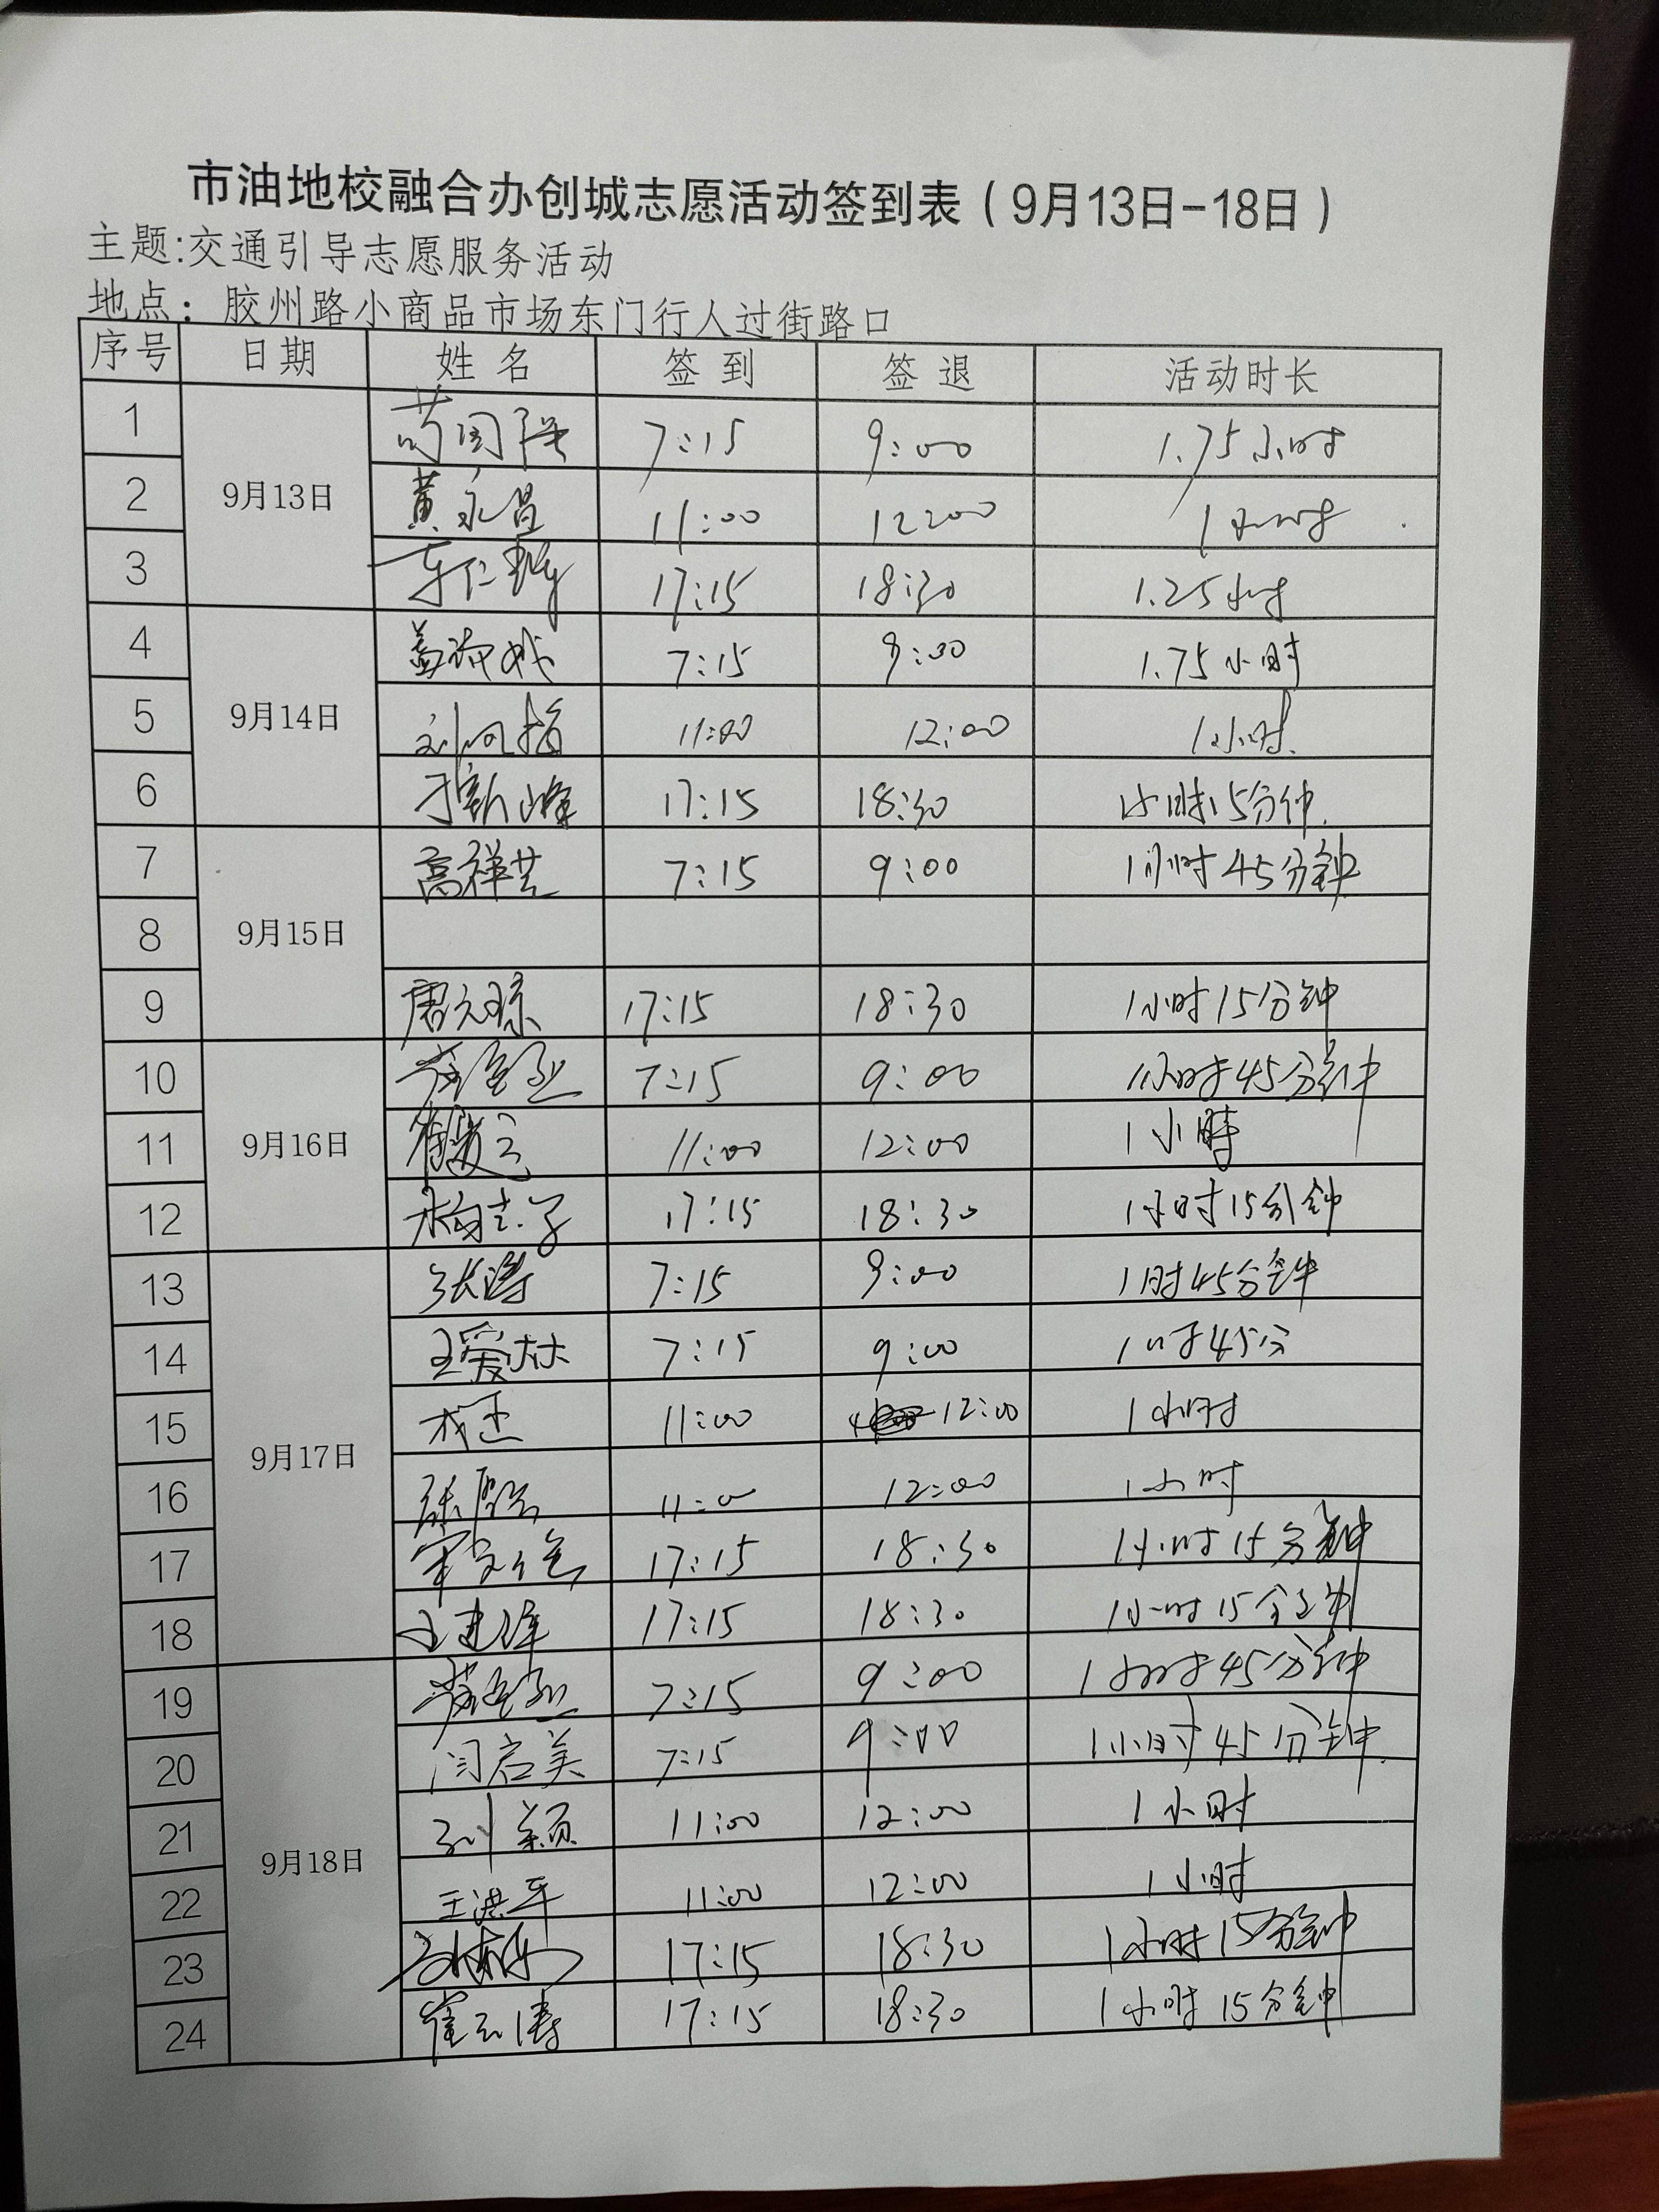 市油地校融合办创城志愿活动签到表（9月13日-18日）
主题:交通引导志愿服务活动
地点：胶州路小商品市场东门行人过街路口
序号 日期 姓名 签到 签退 活动时长
9月13日
1 7:15 9:00 1.75小时
2 黄永昌 11:00 12:00 1小时
3 17:15 18:30 1.25小时
9月14日
4 7:15 9:00 1.75小时
5 11:00 12:00 1小时
6 于新峰 17:15 18:30 1小时15分钟
9月15日
7 高祥芸 7:15 9:00 1小时45分钟
8
9 17:15 18:30 1小时15分钟
9月16日
10 7:15 9:00 1小时45分钟
11 11:00 12:00 1小時
12 17:15 18:30 1小时15分钟
9月17日
13 张涛 7:15 9:00 1时45分钟
14 王爱林 7:15 9:00 1时45分
15 11:00 12:00 1小时
16 11:00 12:00 1小时
17 17:15 18:30 1小时15分钟
18 17:15 18:30 1小时15分钟
9月18日
19 7:15 9:00 1小时45分钟
20 闫启美 7:15 9:00 1小时45分钟
21 刘颖 11:00 12:00 1小时
22 王洪平 11:00 12:00 1小时
23 17:15 18:30 1小时15分钟
24 17:15 18:30 1小时15分钟